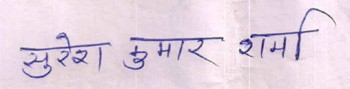 सुरेश कुमार शर्मा